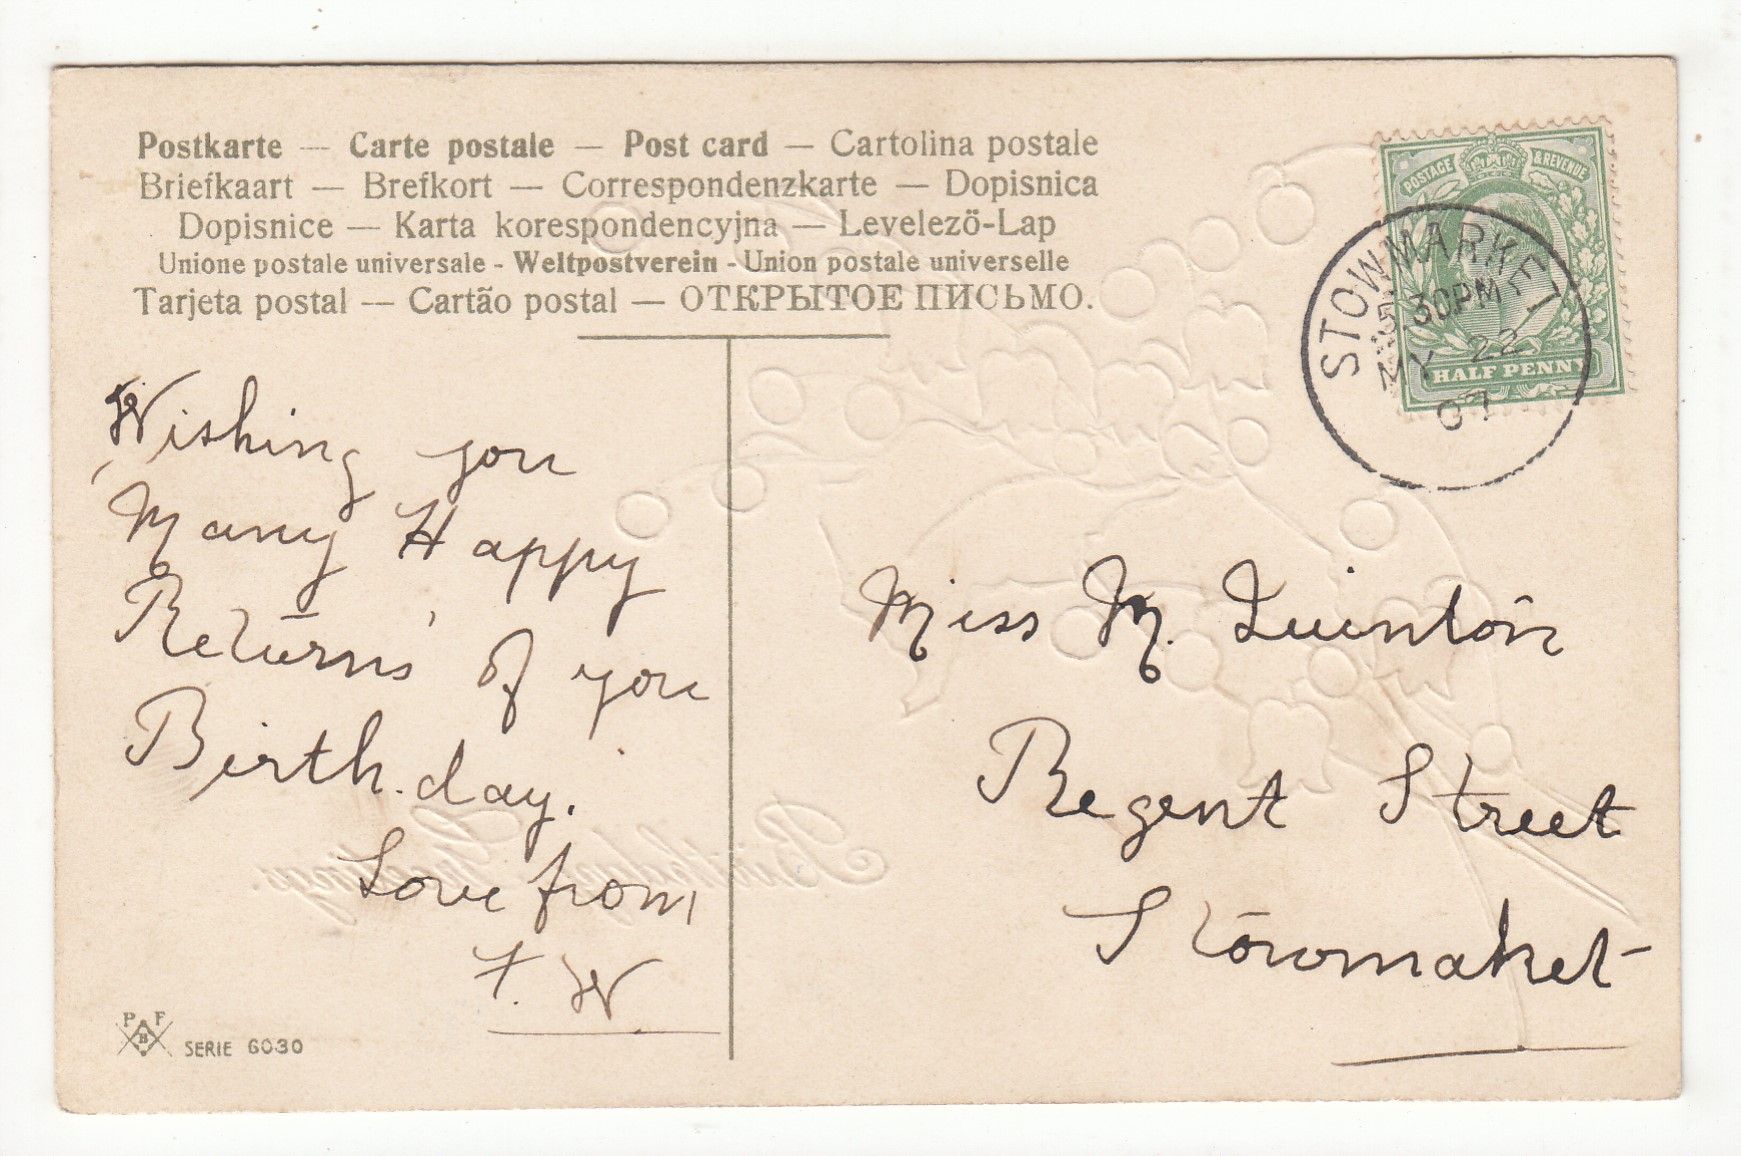 Postkarte — Carte postale — Post card — Cartolina postale
Briefkaart — Brefkort — Correspondenzkarte — Dopisnica
Dopisnice — Karta korespondencyjna — Levelezö-Lap
Unione postale universale - Weltpostverein - Union postale universelle
Tarjeta postal — Cartão postal — ОТКРЫТОЕ ПИСЬМО.
POSTAGE & REVENUE
HALF PENNY
STOWMARKET
5.30PM
MY 22
07
Wishing you
Many Happy
Returns of you
Birth.day.
Love from
F. W.
Miss M. Quinton
Regent Street
Stowmaket
Birthday Greetings.
P F
B
SERIE 6030